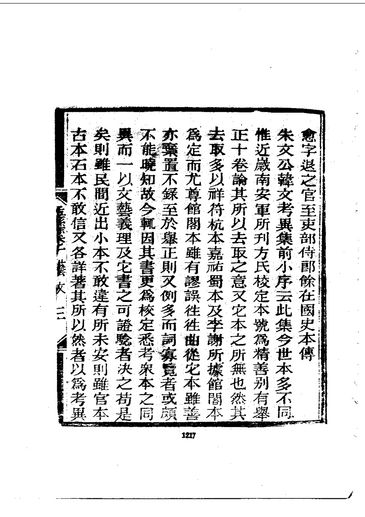 愈字退之官至吏部侍郎餘在國史本傳
朱文公韓文考異集前小序云此集今世本多不同
惟近歲南安軍所刊方氏校定本號為精善別有舉
正十卷論其所以去取之意又它本之所無也然其
去取多以祥符杭本嘉祐蜀本及李謝所據館閣本
為定而尤尊館閣本雖有謬誤往往曲從它本雖善
亦棄置不錄至於舉正則又例多而詞寡覽者或頗
不能曉知故今輒因其書更為校定悉考眾本之同
異而一以文勢義理及它書之可證驗者決之苟是
矣則雖民間近出小本不敢違有所未安則雖官本
古本石本不敢信又各詳著其所以然者以為考異
三
1217